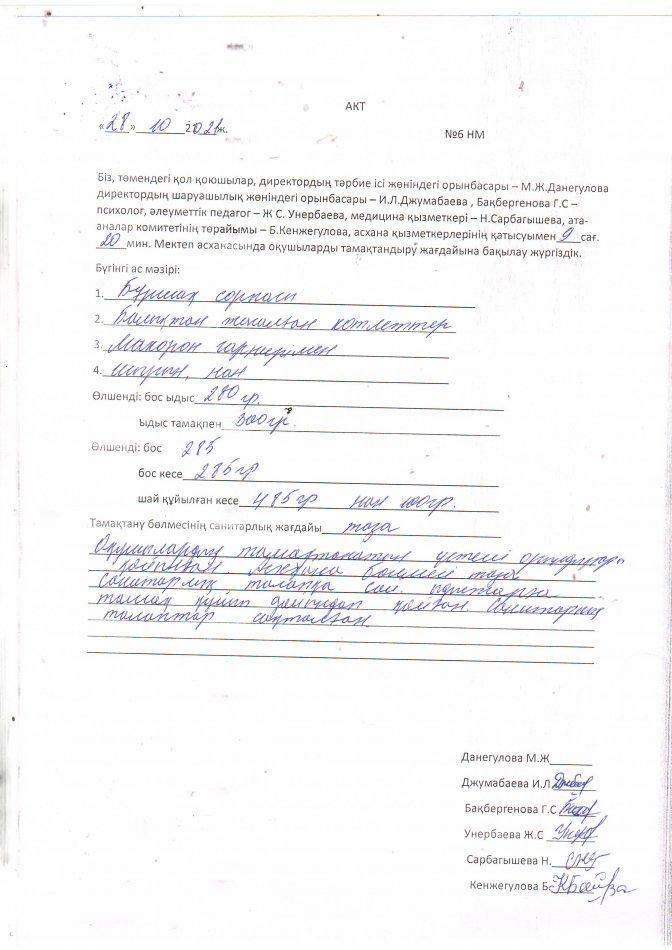 АКТ
«28» 10 2021ж.
№6 НМ
Біз, төмендегі қол қоюшылар, директордың тәрбие ісі жөніндегі орынбасары – М.Ж.Данегулова
директордың шаруашылық жөніндегі орынбасары – И.Л.Джумабаева , Бақбергенова Г.С –
психолог, әлеуметтік педагог – Ж С. Унербаева, медицина қызметкері – Н.Сарбагышева, ата-
аналар комитетінің төрайымы – Б.Кенжегулова, асхана қызметкерлерінің қатысуымен 9 сағ.
20 мин. Мектеп асханасында оқушыларды тамақтандыру жағдайына бақылау жүргіздік.
Бүгінгі ас мәзірі:
1. Бұршақ сорпасы
2. Балықтан жасалған котлеттер
3. Макорон гарнирімен
4. шырын, нан
Өлшенді: бос ыдыс 280 гр.
ыдыс тамақпен 300гр.
Өлшенді: бос 285
бос кесе 285гр
шай құйылған кесе 485гр нан 100гр.
Тамақтану бөлмесінің санитарлық жағдайы таза
Оқушылардың тамақтанатын үстелі
қойылған. Асхана бөлмесі таза
санитарлық талапқа сай
тамақ құйып дайындап қойған санитарлық
талаптар сақталған.
Данегулова М.Ж
Джумабаева И.Л
Бақбергенова Г.С
Унербаева Ж.С
Сарбагышева Н.
Кенжегулова Б